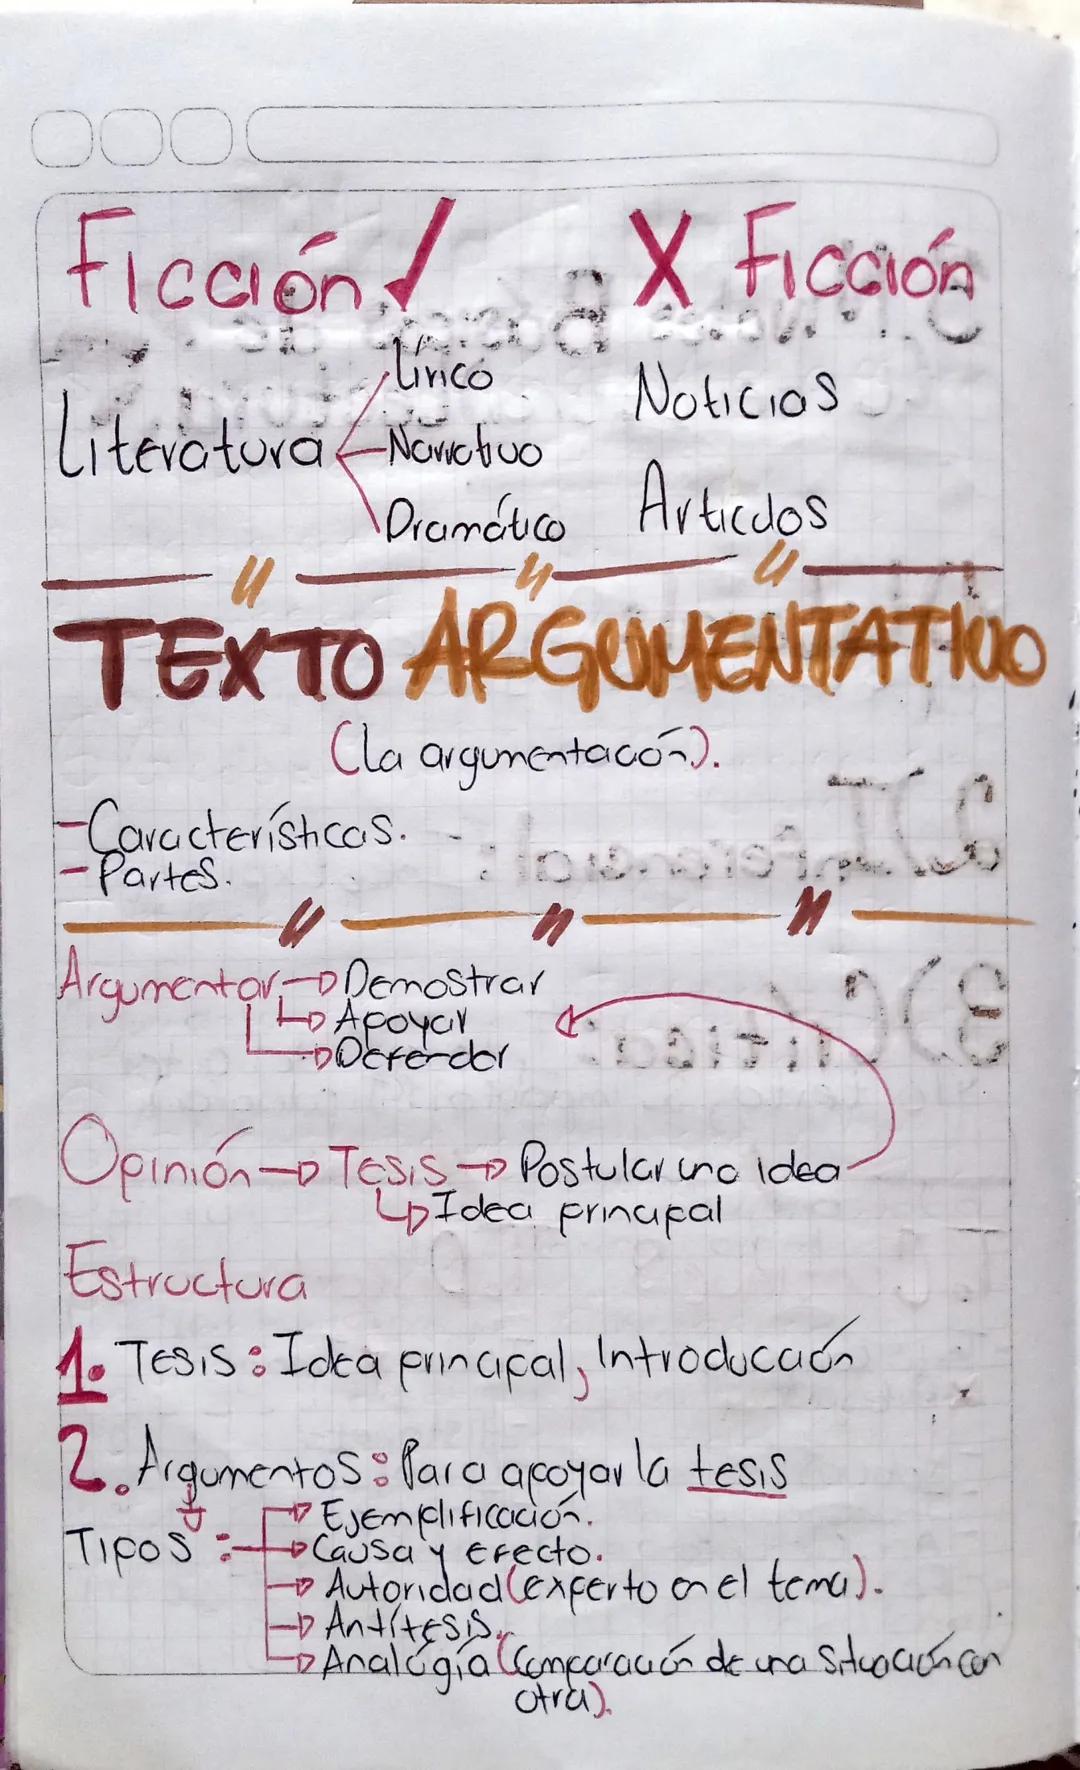 Ficción ✓ X Ficción
Lírico
Literatura Narrativo
Dramático
Noticias
Artículos
TEXTO ARGUMENTATIVO
(La argumentación).
- Características.
- Partes.
Argumentar → Demostrar
→ Apoyar
→ Defender
Opinión → Tesis → Postular una idea
↳ Idea principal
Estructura
1. Tesis: Idea principal, Introducción
2. Argumentos: Para apoyar la tesis
Tipos: → Ejemplificación.
→ Causa y efecto.
→ Autoridad (experto en el tema).
→ Antítesis.
→ Analogía (Comparación de una situación con
otra).